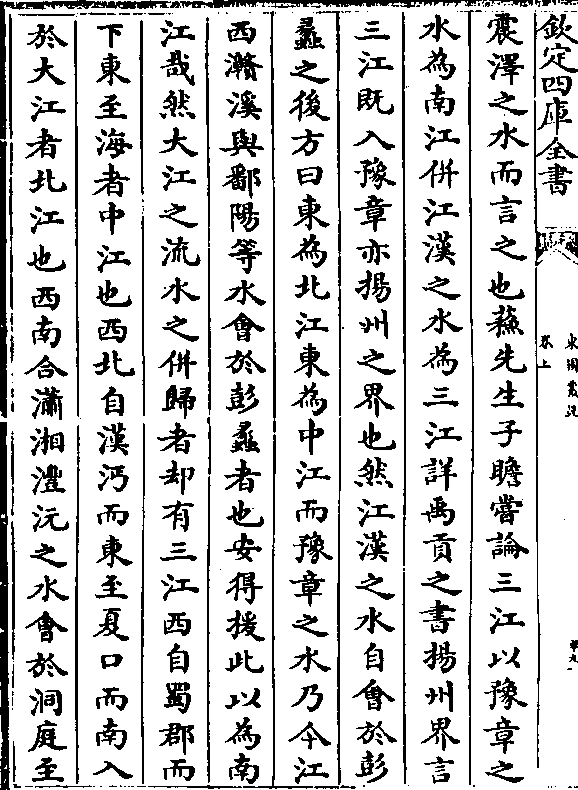 欽定四庫全書
東園叢說
卷上
震澤之水而言之也蘇先生子瞻嘗論三江以豫章之
水為南江併江漢之水為三江詳禹貢之書揚州界言
三江既入豫章亦揚州之界也然江漢之水自會於彭
蠡之後方曰東為北江東為中江而豫章之水乃今江
西灨溪與鄱陽等水會於彭蠡者也安得援此以為南
江哉然大江之流水之併歸者却有三江西自蜀郡而
下東至海者中江也西北自漢沔而東至夏口而南入
於大江者北江也西南合瀟湘灃沅之水會於洞庭至